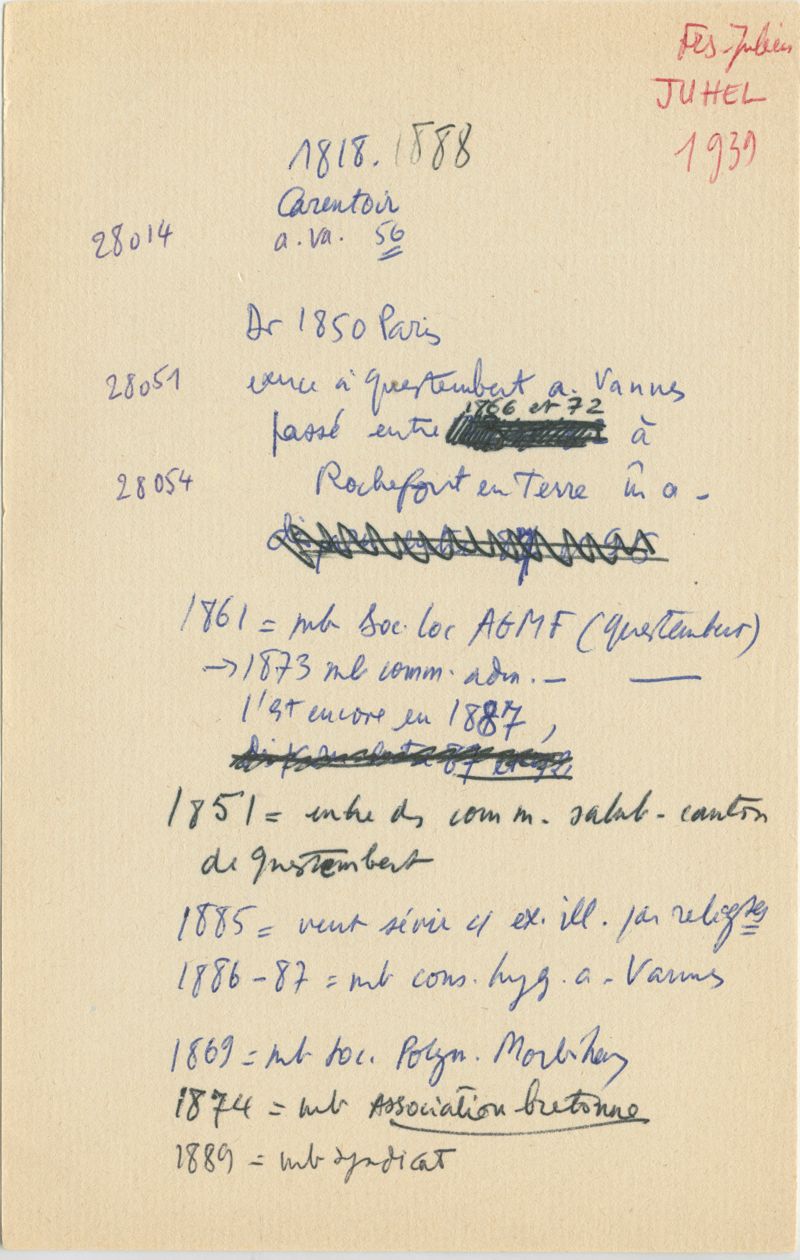 Frs-Julien
JUHEL
1939
1818. 1888
Carentoir
28014 a. va. 56
Dr 1850 Paris
28051 exerce à Questembert a. Vannes
1866 et 72
passé entre à
28054 Rochefort en Terre m̂ a -
1861 = mb Soc. loc AGMF (Questembert)
→ 1873 mb comm. adm. — ——
l'est encore en 1887,
1851 = entre ds comm. salub - canton
de Questembert
1885 = veut sévir c/ ex. ill. par religses
1886-87 = mb cons. hyg. a - Vannes
1869 = mb soc. Polym. Morbihan
1874 = mb Association bretonne
1889 = mb syndicat